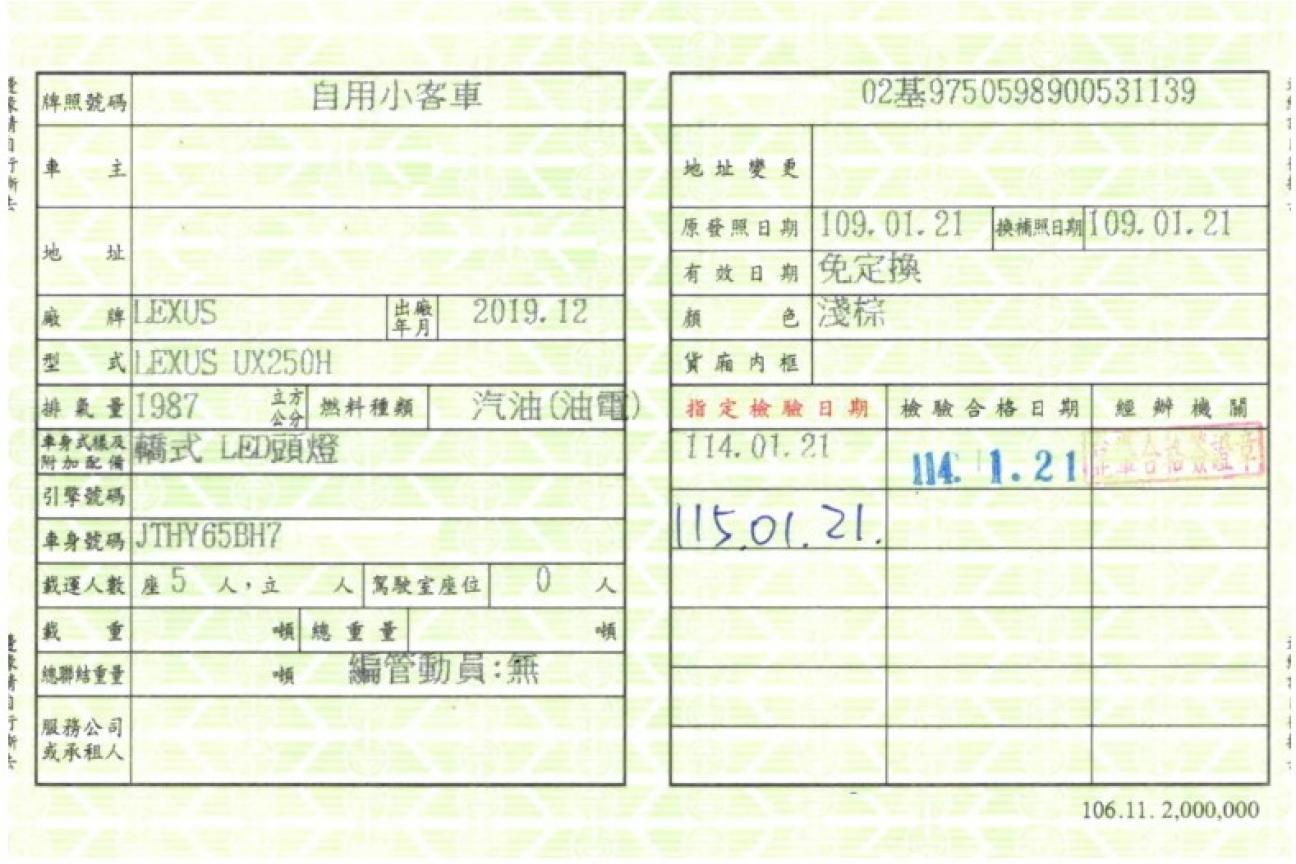 牌照號碼 自用小客車
車主
地址
廠牌 LEXUS 出廠年月 2019.12
型式 LEXUS UX250H
排氣量 1987 立方公分 燃料種類 汽油(油電)
車身式樣及附加配備 轎式 LED頭燈
引擎號碼
車身號碼 JTHY65BH7
載運人數 座 5 人,立 人 駕駛室座位 0 人
載重 噸 總重量 噸
總聯結重量 噸 編管動員:無
服務公司或承租人
02基9750598900531139
地址變更
原發照日期 109.01.21 換補照日期 109.01.21
有效日期 免定換
顏色 淺棕
貨廂內框
指定檢驗日期 檢驗合格日期 經辦機關
114.01.21 114. 1.21
115.01.21.
106.11. 2,000,000